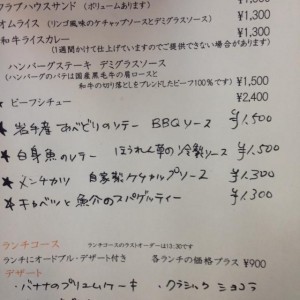 クラブハウスサンド （ボリュームあります） ¥1,300
オムライス （リンゴ風味のケチャップソースとデミグラスソース） ¥1,300
和牛ライスカレー ¥1,300
（1週間かけて仕上げていますのでご提供できない場合があります）
ハンバーグステーキ デミグラスソース ¥1,500
（ハンバーグのパテは国産黒毛牛の肩ロースと
和牛の切り落としをブレンドしたビーフ100%です）
★ ビーフシチュー ¥2,400
★ 岩手産あべどりのソテー BBQソース ¥1,500
★ 白身魚のソテー ほうれん草の冷製ソース ¥1,500
★ メンチカツ 自家製ケチャップソース ¥1,300
★ キャベツと魚介のスパゲルティー ¥1,300
ランチコース ランチコースのラストオーダーは13:30です
ランチにオードブル・デザート付き 各ランチの価格プラス ¥900
デザート
・バナナのプリュムケーキ ・クラシックショコラ